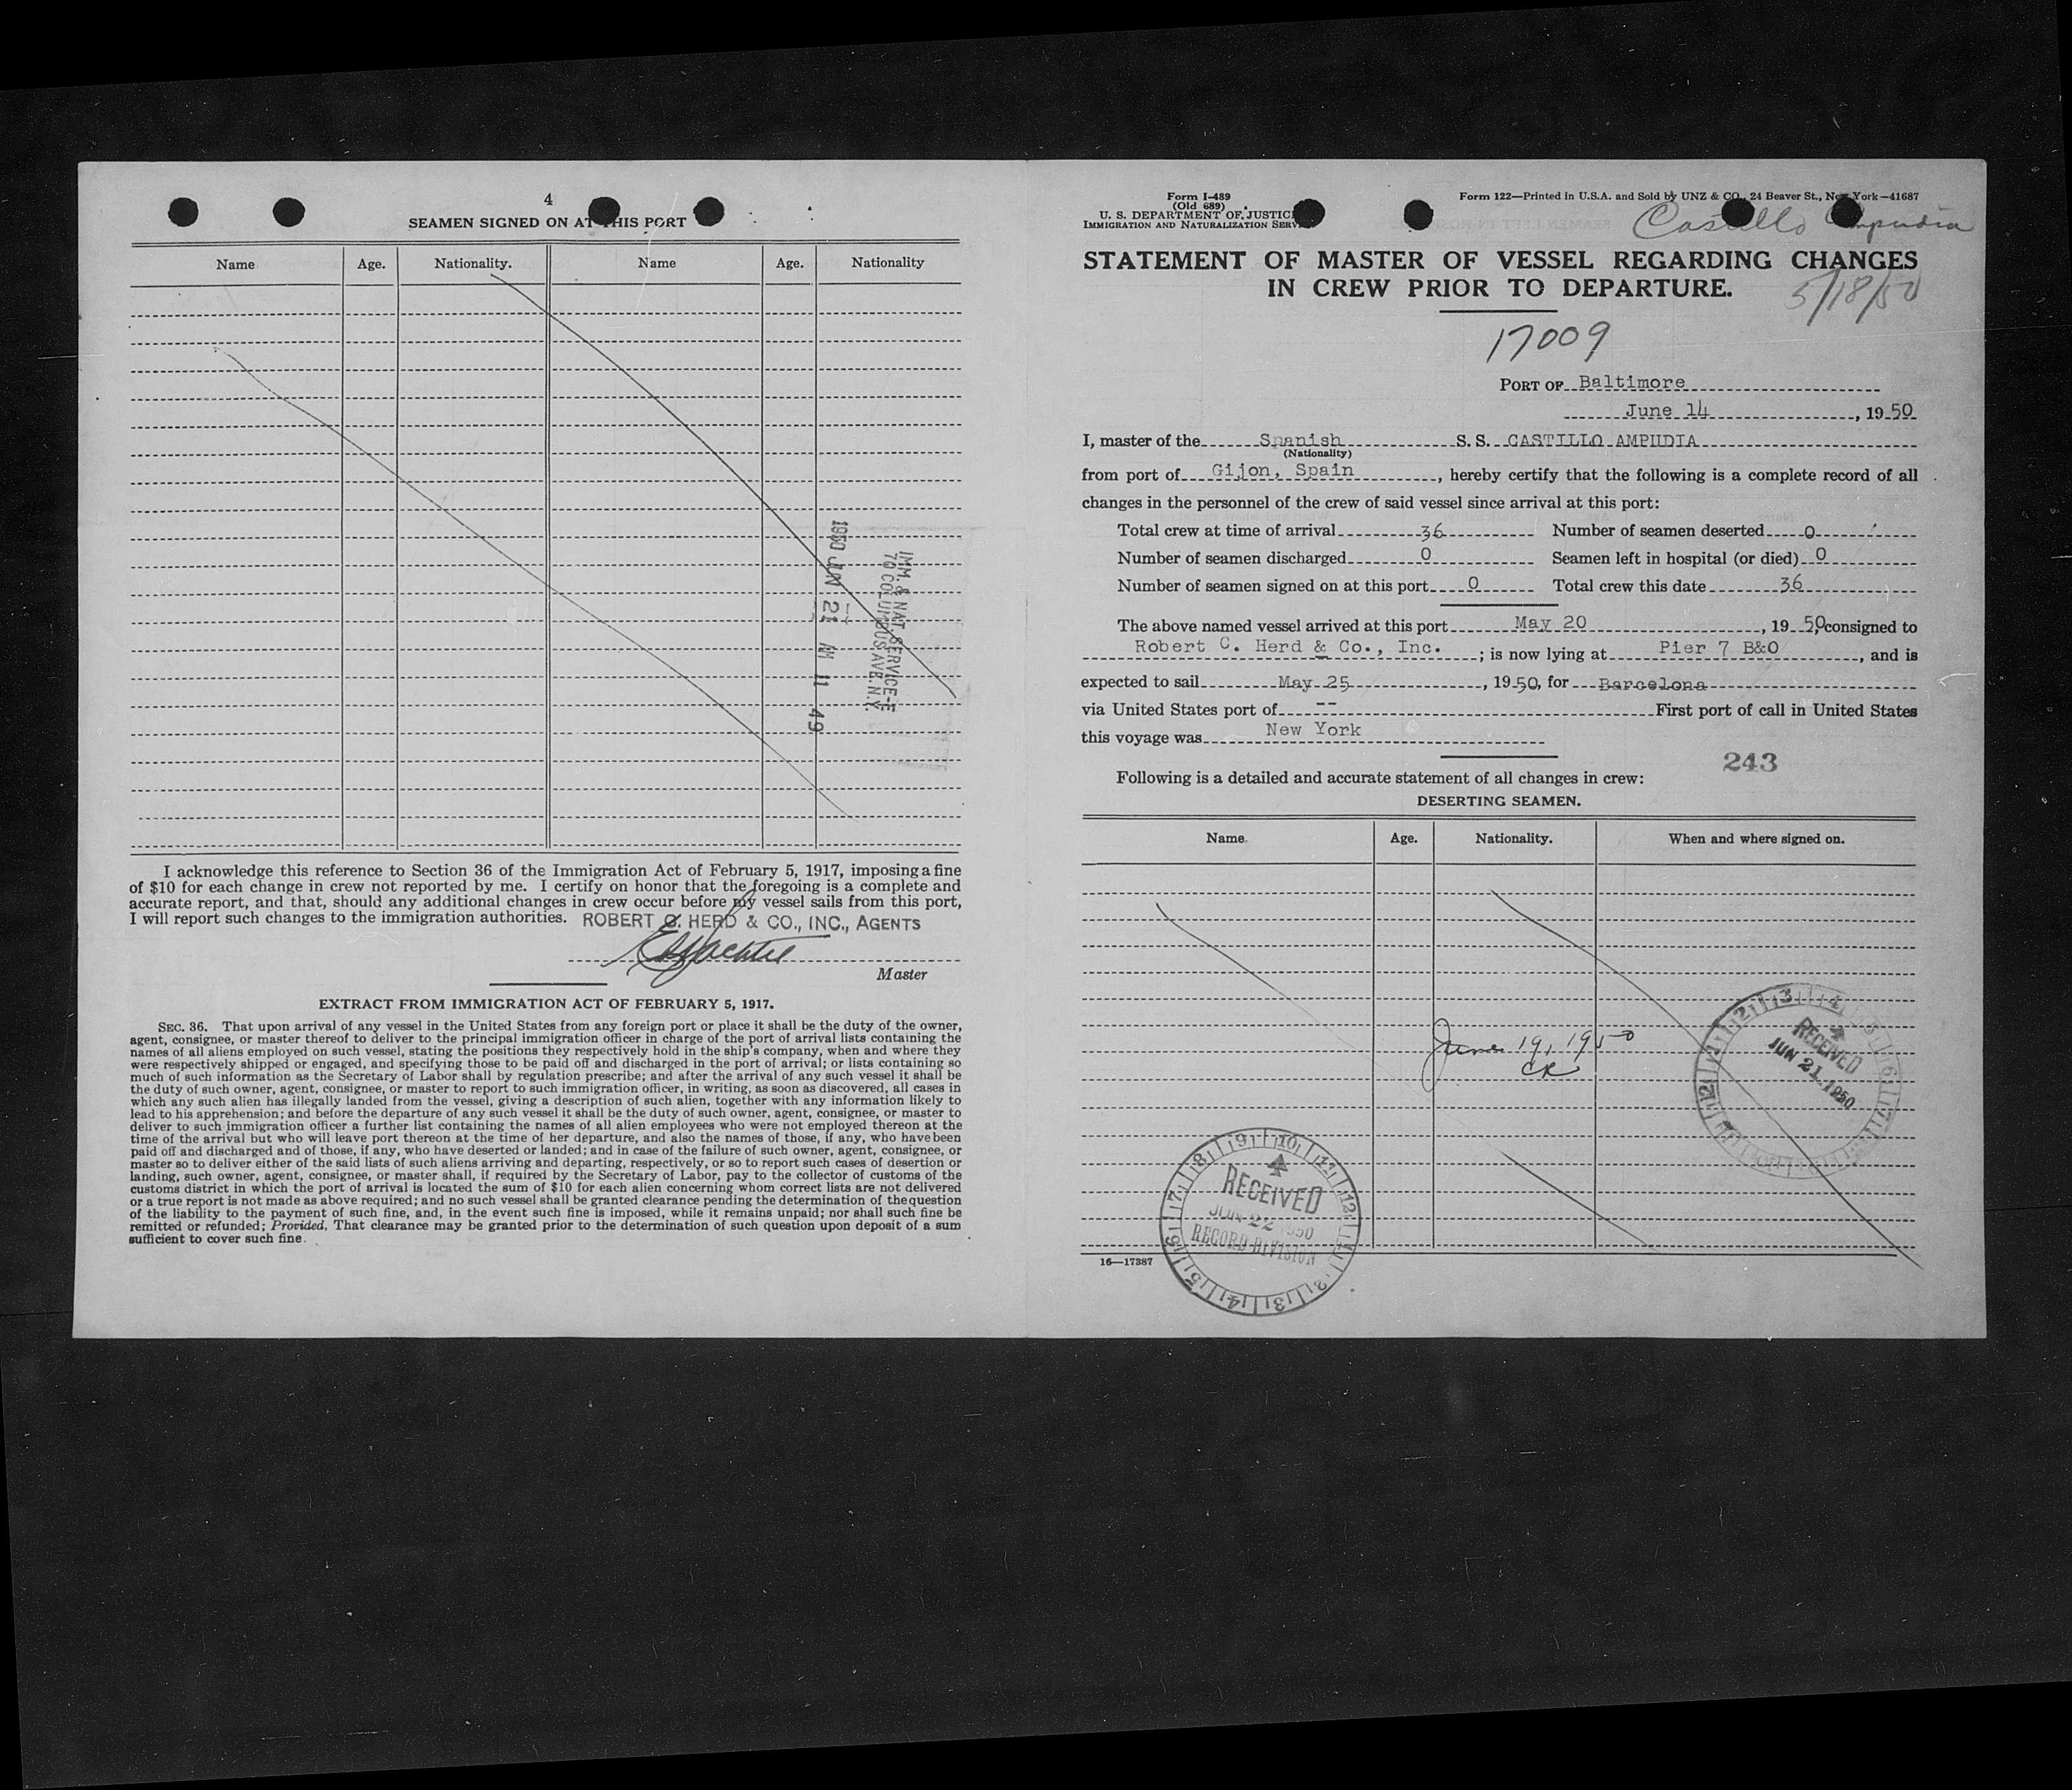 4
SEAMEN SIGNED ON AT THIS PORT
Name Age. Nationality. Name Age. Nationality
1950 JUN 21 AM 11 49
IMM. & NAT. SERVICE-E
70 COLUMBUS AVE. N.Y.
I acknowledge this reference to Section 36 of the Immigration Act of February 5, 1917, imposing a fine
of $10 for each change in crew not reported by me. I certify on honor that the foregoing is a complete and
accurate report, and that, should any additional changes in crew occur before my vessel sails from this port,
I will report such changes to the immigration authorities. ROBERT C. HERD & CO., INC., AGENTS
Master
EXTRACT FROM IMMIGRATION ACT OF FEBRUARY 5, 1917.
SEC. 36. That upon arrival of any vessel in the United States from any foreign port or place it shall be the duty of the owner,
agent, consignee, or master thereof to deliver to the principal immigration officer in charge of the port of arrival lists containing the
names of all aliens employed on such vessel, stating the positions they respectively hold in the ship's company, when and where they
were respectively shipped or engaged, and specifying those to be paid off and discharged in the port of arrival; or lists containing so
much of such information as the Secretary of Labor shall by regulation prescribe; and after the arrival of any such vessel it shall be
the duty of such owner, agent, consignee, or master to report to such immigration officer, in writing, as soon as discovered, all cases in
which any such alien has illegally landed from the vessel, giving a description of such alien, together with any information likely to
lead to his apprehension; and before the departure of any such vessel it shall be the duty of such owner, agent, consignee, or master to
deliver to such immigration officer a further list containing the names of all alien employees who were not employed thereon at the
time of the arrival but who will leave port thereon at the time of her departure, and also the names of those, if any, who have been
paid off and discharged and of those, if any, who have deserted or landed; and in case of the failure of such owner, agent, consignee, or
master so to deliver either of the said lists of such aliens arriving and departing, respectively, or so to report such cases of desertion or
landing, such owner, agent, consignee, or master shall, if required by the Secretary of Labor, pay to the collector of customs of the
customs district in which the port of arrival is located the sum of $10 for each alien concerning whom correct lists are not delivered
or a true report is not made as above required; and no such vessel shall be granted clearance pending the determination of the question
of the liability to the payment of such fine, and, in the event such fine is imposed, while it remains unpaid; nor shall such fine be
remitted or refunded; Provided, That clearance may be granted prior to the determination of such question upon deposit of a sum
sufficient to cover such fine.
Form I-489
(Old 689)
U. S. DEPARTMENT OF JUSTICE
IMMIGRATION AND NATURALIZATION SERVICE
Form 122—Printed in U.S.A. and Sold by UNZ & CO., 24 Beaver St., New York—41687
Castillo Ampudia
STATEMENT OF MASTER OF VESSEL REGARDING CHANGES
IN CREW PRIOR TO DEPARTURE.
5/18/50
17009
PORT OF Baltimore
June 14, 1950
I, master of the Spanish S. S. CASTILLO AMPUDIA
(Nationality)
from port of Gijon, Spain, hereby certify that the following is a complete record of all
changes in the personnel of the crew of said vessel since arrival at this port:
Total crew at time of arrival 36 Number of seamen deserted 0
Number of seamen discharged 0 Seamen left in hospital (or died) 0
Number of seamen signed on at this port 0 Total crew this date 36
The above named vessel arrived at this port May 20, 19 50, consigned to
Robert C. Herd & Co., Inc.; is now lying at Pier 7 B&O, and is
expected to sail May 25, 1950, for Barcelona
via United States port of -- First port of call in United States
this voyage was New York
243
Following is a detailed and accurate statement of all changes in crew:
DESERTING SEAMEN.
Name. Age. Nationality. When and where signed on.
June 19, 1950
CR
RECEIVED
JUN 21 1950
RECEIVED
JUN 22 1950
RECORD DIVISION
16—17387